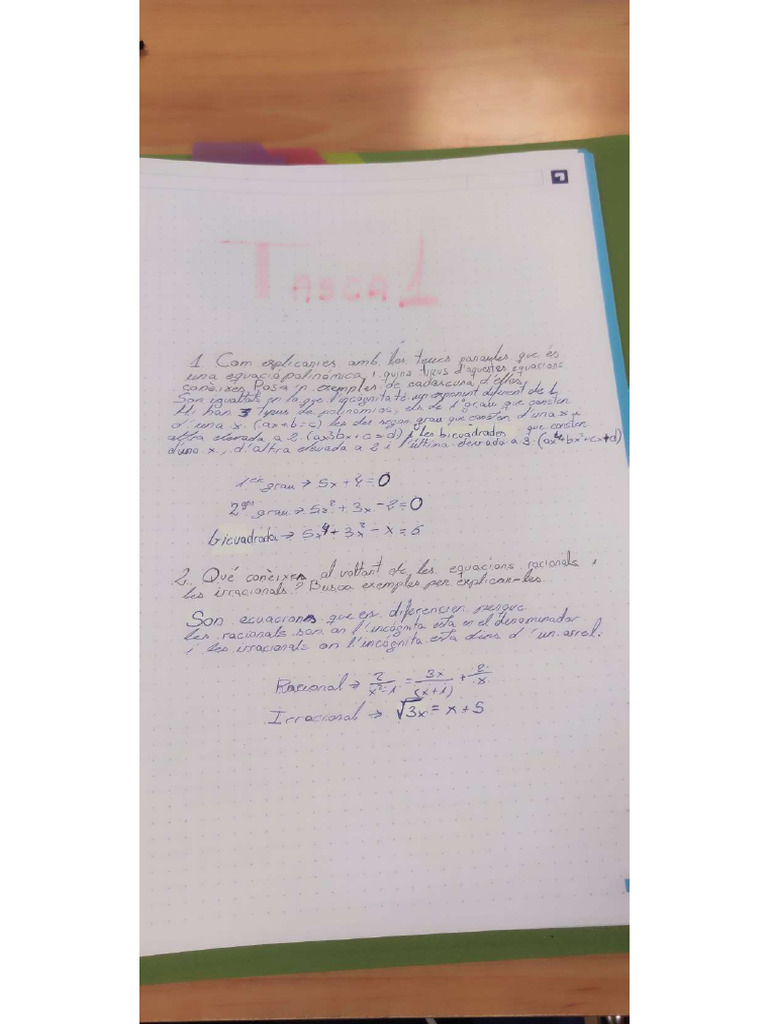 Tasca 1
1. Com explicaries amb les teues paraules que és
una equació polinòmica i quins tipus d'aquestes equacions
conèixes. Posa'n exemples de cadascuna d'elles.
Son igualtats en la que l'incognita té un exponent diferent de 1.
Hi han 3 tipus de polinomias, els de 1r grau que consten
d'una x. (ax+b=c) les dos segon grau que consten d'una x i
altra elevada a 2. (ax3bx+c=d) i les bicuadrades que consten
d'una x, d'altra elevada a 2 i l'última elevada a 3. (ax⁴+bx²+cx+d)
1er grau → 5x+4=0
2gon grau → 5x²+3x-2=0
bicuadrada → 5x⁴+3x²-x=5
2. Qué conèixes al voltant de les equacions racionals i
les irracionals? Busca exemples per explicar-les.
Son ecuacions que es diferencien perque
les racionals son on l'incògnita esta en el denominador
i les irracionals on l'incògnita esta dins d'un arrel.
Racional → 2/x²-1 = 3x/(x+1) + 2/x
Irracional → √3x = x+5